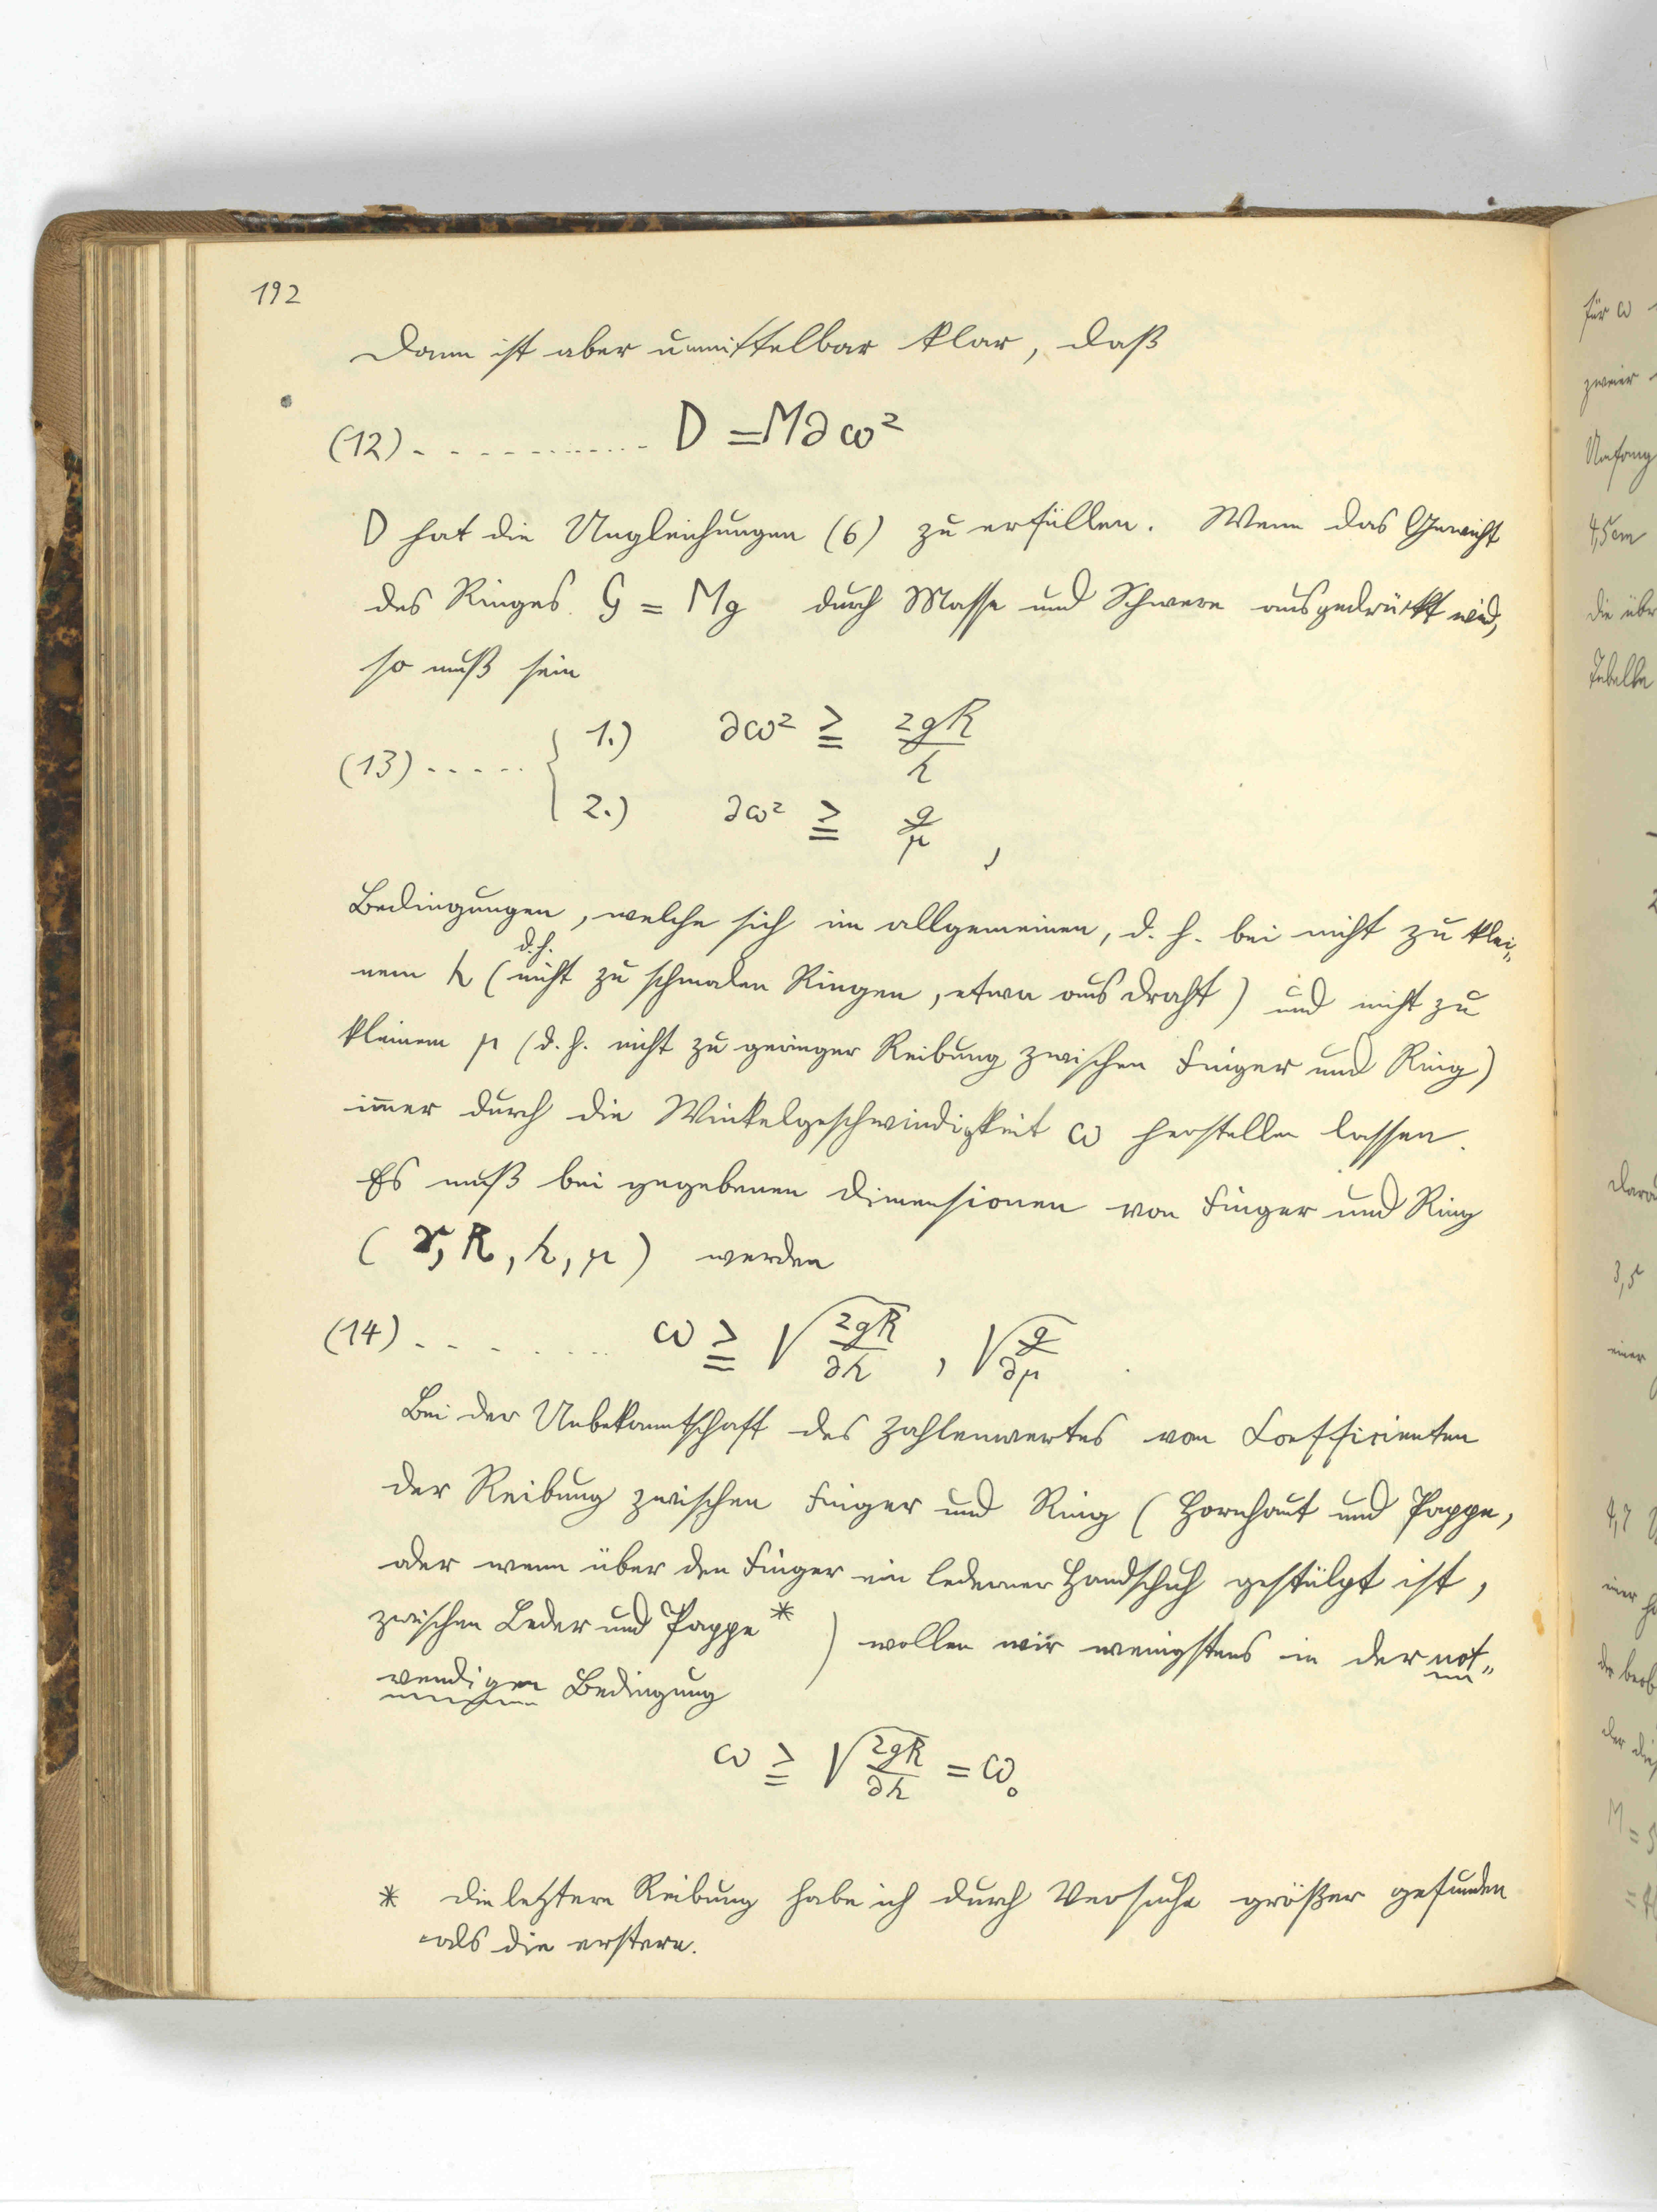 192
Dann ist aber unmittelbar klar, daß
(12) . . . . . . . . . . . . D = M∂ω²
D hat die Ungleichungen (6) zu erfüllen. Wenn das Gewicht
des Ringes G = Mg durch Masse und Schwere ausgedrückt wird,
so muß sein
(13) . . . . . { 1.) ∂ω² ≧ 2gR/h
2.) ∂ω² ≧ g/μ ,
Bedingungen, welche sich im allgemeinen, d. h. bei nicht zu klei„
d.h.
nem h (nicht zu schmalen Ringen, etwa aus Draht) und nicht zu
kleinem μ (d. h. nicht zu geringer Reibung zwischen Finger und Ring)
im̄er durch die Winkelgeschwindigkeit ω herstellen lassen.
Es muß bei gegebenen Dimensionen von Finger und Ring
(r, R, h, μ) werden
(14) . . . . . . . ω ≧ √(2gR/∂h) , √(g/∂μ) .
Bei der Unbekanntschaft des Zahlenwertes vom Coefficienten
der Reibung zwischen Finger und Ring (Hornhaut und Pappe,
oder wenn über den Finger ein lederner Handschuh gestülpt ist,
zwischen Leder und Pappe *) wollen wir wenigstens in der not„
wendigen Bedingung
ω ≧ √(2gR/∂h) = ω₀
* Die letztere Reibung habe ich durch Versuche größer gefunden
als die erstere.
für ω
zweier
Umfang
4,5cm
die über
Tabelle
3,5
einer
4,7
M = 5